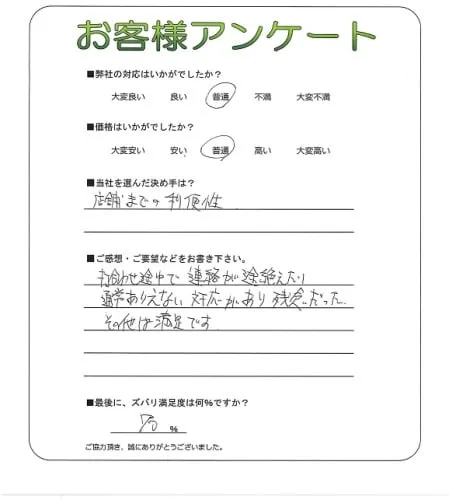 お客様アンケート
■弊社の対応はいかがでしたか？
大変良い 良い 普通 不満 大変不満
■価格はいかがでしたか？
大変安い 安い 普通 高い 大変高い
■当社を選んだ決め手は？
店舗までの利便性
■ご感想・ご要望などをお書き下さい。
打合せ途中で連絡が途絶えたり
通常ありえない対応があり残念だった。
その他は満足です
■最後に、ズバリ満足度は何％ですか？
％
ご協力頂き、誠にありがとうございました。